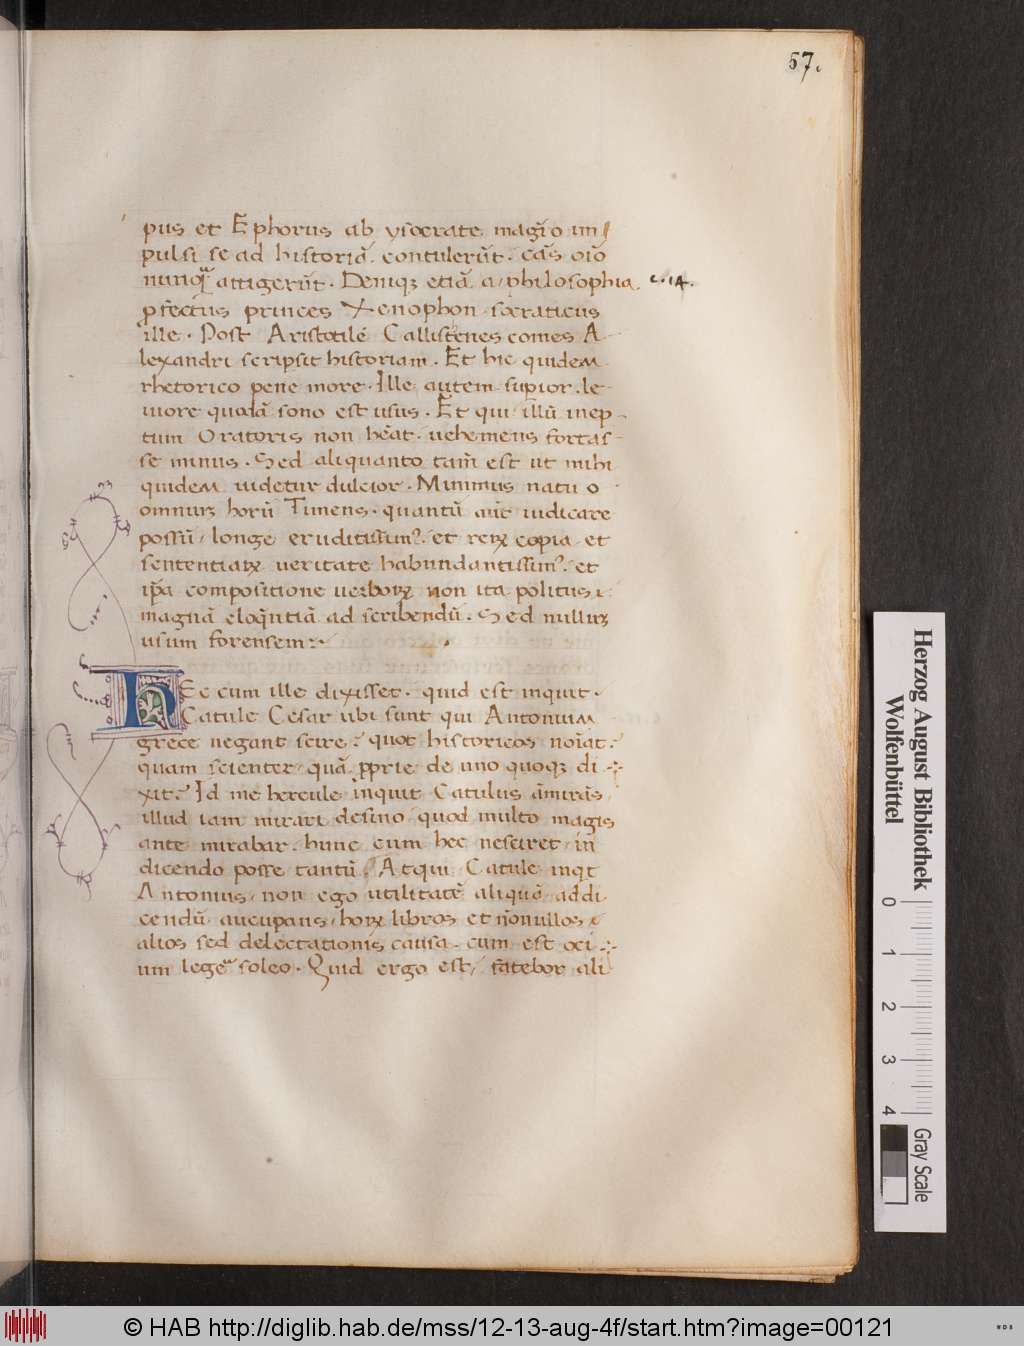 57.
pus et Ephorus ab ysocrate magr̄o im
pulsi se ad historiā contulerūt. cās oīo
nunqᷓ attigerūt. Deniqꝫ etiā a philosophia
c. 14.
pfectus princes Xenophon socraticus
ille. Post Aristotilē Callistenes comes A-
lexandri scripsit historiam. Et hic quidem
rhetorico pene more. Ille autem supior. le
uiore quodā sono est usus. Et qui illū inep-
tum Oratoris non heāt. uehemens fortas-
se minus. Sed aliquanto tam̄ est ut mihi
quidem uidetur dulcior. Minimus natu o
omniuꝫ horū Timeus. quantū aūt iudicare
possū, longe eruditissimꝰ. et reꝝ copia et
sententiaꝝ ueritate habundantissimꝰ. et
ip̄a compositione uerboꝝ non ita politus.
magnā eloq̄ntiā ad scribendū. Sed nulluꝫ
usum forensem:
HEc cum ille dixisset. quid est inquit.
Catule Cesar ubi sunt qui Antonium
grece negant scire? quot historicos noīat?
quam scienter, quā pprie de uno quoqꝫ di
xit? Id me hercule inquit Catulus āmirās,
illud iam mirari desino, quod multo magis
ante mirabar. hunc cum hec nesciret in
dicendo posse tantū. Atqui Catule inqt
Antonius, non ego utilitatē aliquā ad di
cendū aucupans, hoꝝ libros et nōnullos
alios sed delectationis causa. cum est oci
um legeʳ soleo. Quid ergo est, fatebor ali
Herzog August Bibliothek
Wolfenbüttel
0 1 2 3 4
Gray Scale
© HAB http://diglib.hab.de/mss/12-13-aug-4f/start.htm?image=00121